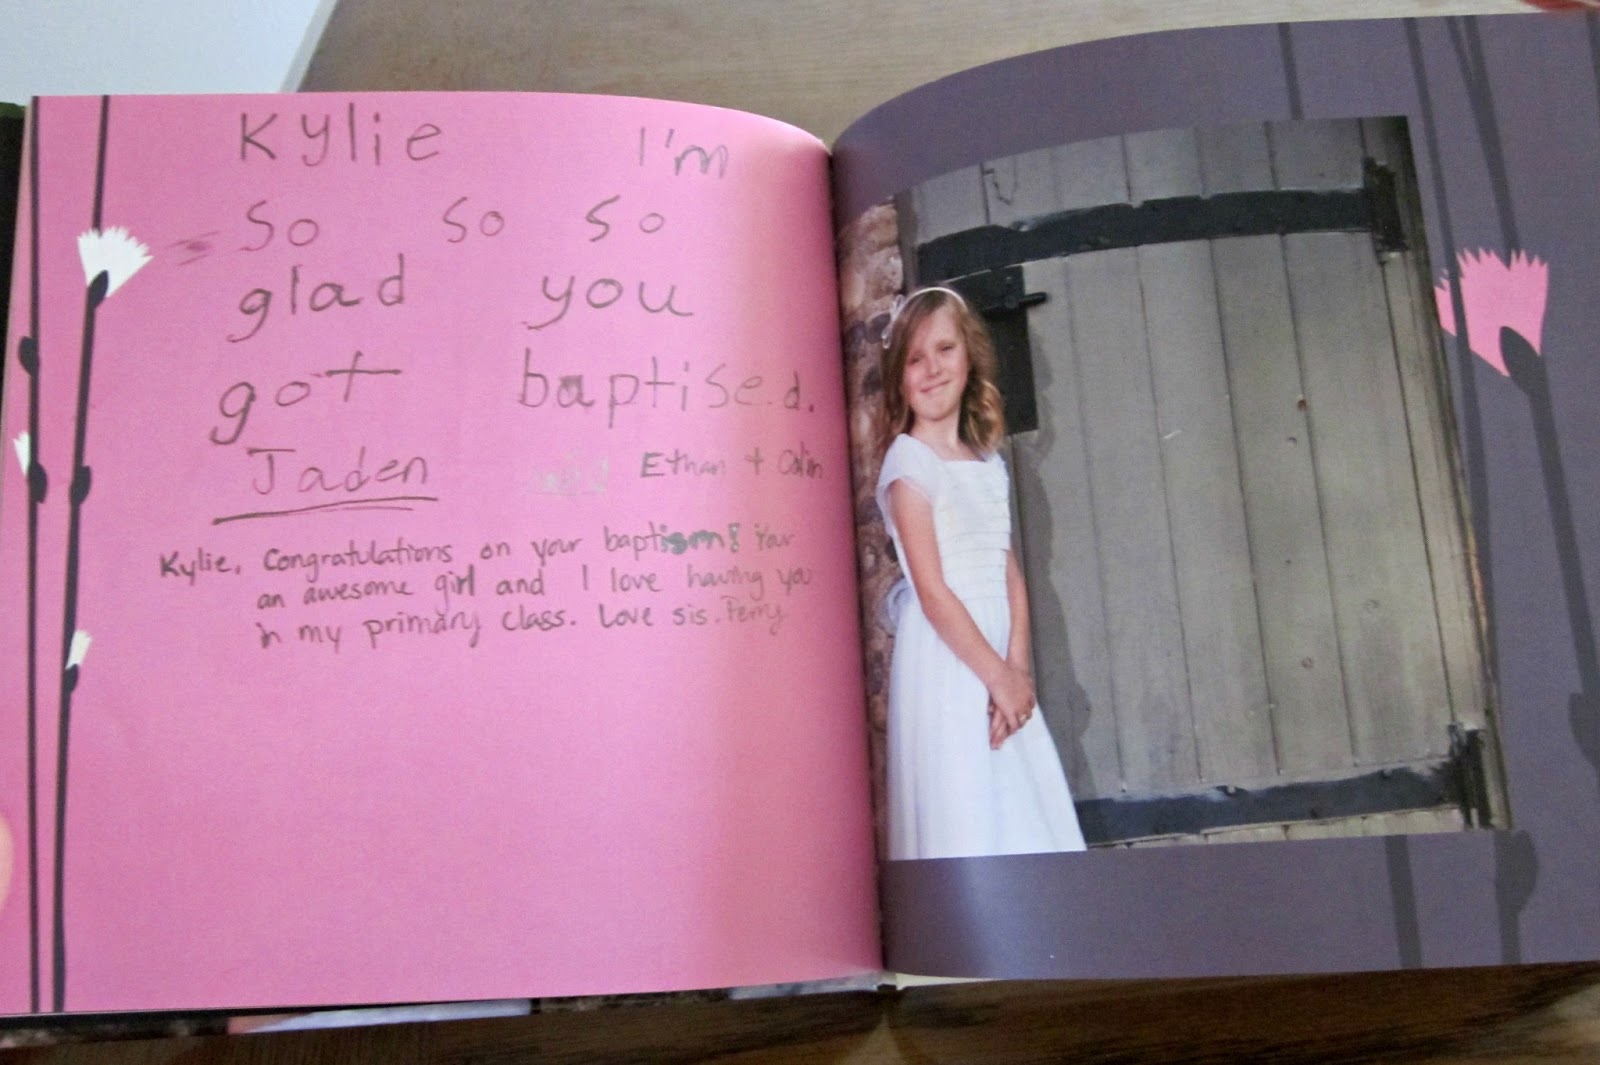 Kylie I'm
so so so
glad you
got baptised.
Jaden Ethan + Colin
Kylie, Congratulations on your baptism! Your
an awesome girl and I love having you
in my primary class. Love sis.